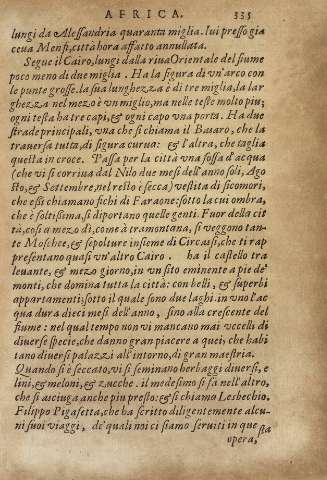 AFRICA. 335
lungi da Alessandria quaranta miglia. lui presso gia
ceua Menfi, città hora affatto annullata.
Segue il Cairo, lungi dalla riua Orientale del fiume
poco meno di due miglia. Ha la figura di vn'arco con
le punte grosse. la sua lunghezza è di tre miglia, la lar
ghezza nel mezo è vn miglio, ma nelle teste molto piu;
ogni testa ha tre capi, & ogni capo vna porta. Ha due
strade principali, vna che si chiama il Basaro, che la
trauersa tutta, di figura curua: & l'altra, che taglia
questa in croce. Passa per la città vna fossa d'acqua
(che vi si corriua dal Nilo due mesi dell'anno soli, Ago
sto, & Settembre, nel resto è secca) vestita di sicomori,
che essi chiamano fichi di Faraone: sotto la cui ombra,
che è foltissima, si diportano quelle genti. Fuor della cit
tà, così a mezo dì, come à tramontana, si veggono tan-
te Moschee, & sepolture insieme di Circassi, che ti rap
presentano quasi vn'altro Cairo. ha il castello tra
leuante, & mezo giorno, in vn sito eminente a pie de'
monti, che domina tutta la città: con belli, & superbi
appartamenti: sotto il quale sono due laghi. in vno l'ac
qua dura dieci mesi dell'anno, sino alla crescente del
fiume: nel qual tempo non vi mancano mai vccelli di
diuerse specie, che danno gran piacere a quei, che habi
tano diuersi palazzi all'intorno, di gran maestria.
Quando si è seccato, vi si seminano herbaggi diuersi, e
lini, & meloni, & zucche. il medesimo si fa nell'altro,
che si asciuga anche piu presto: & si chiamo Lesbechio.
Filippo Pigafetta, che ha scritto diligentemente alcu-
ni suoi viaggi, de' quali noi ci siamo seruiti in que
sta
opera,